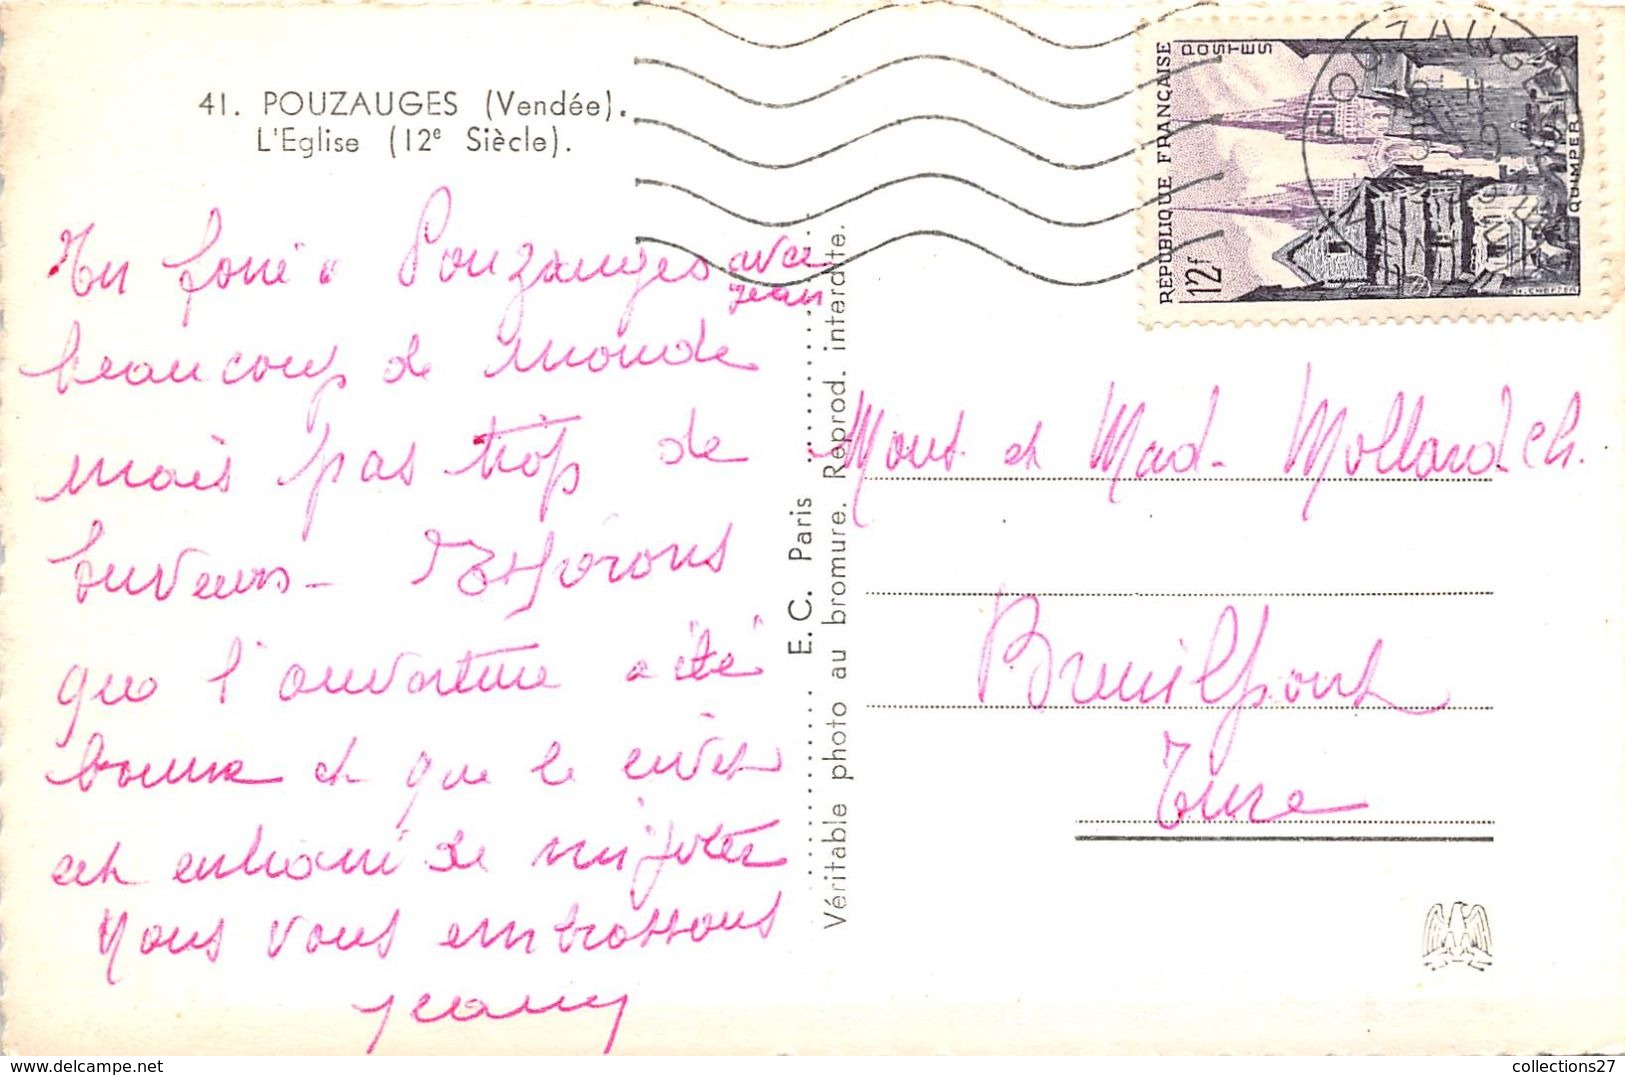 41. POUZAUGES (Vendée).
L'Eglise (12e Siècle).
En foire à Pouzauges avec
Jean
beaucoup de monde
mais pas trop de
buveurs - Espérons
que l'ouverture a été
bonne et que le civet
est en train de mijoter
Nous vous embrassons
Jeany
E. C. Paris
Véritable photo au bromure. Reprod. interdite.
RÉPUBLIQUE FRANÇAISE
POSTES
12f
QUIMPER
POUZAUGES
Mons. et Mad. Mollard Ch.
Breuilpont
Eure
collections27